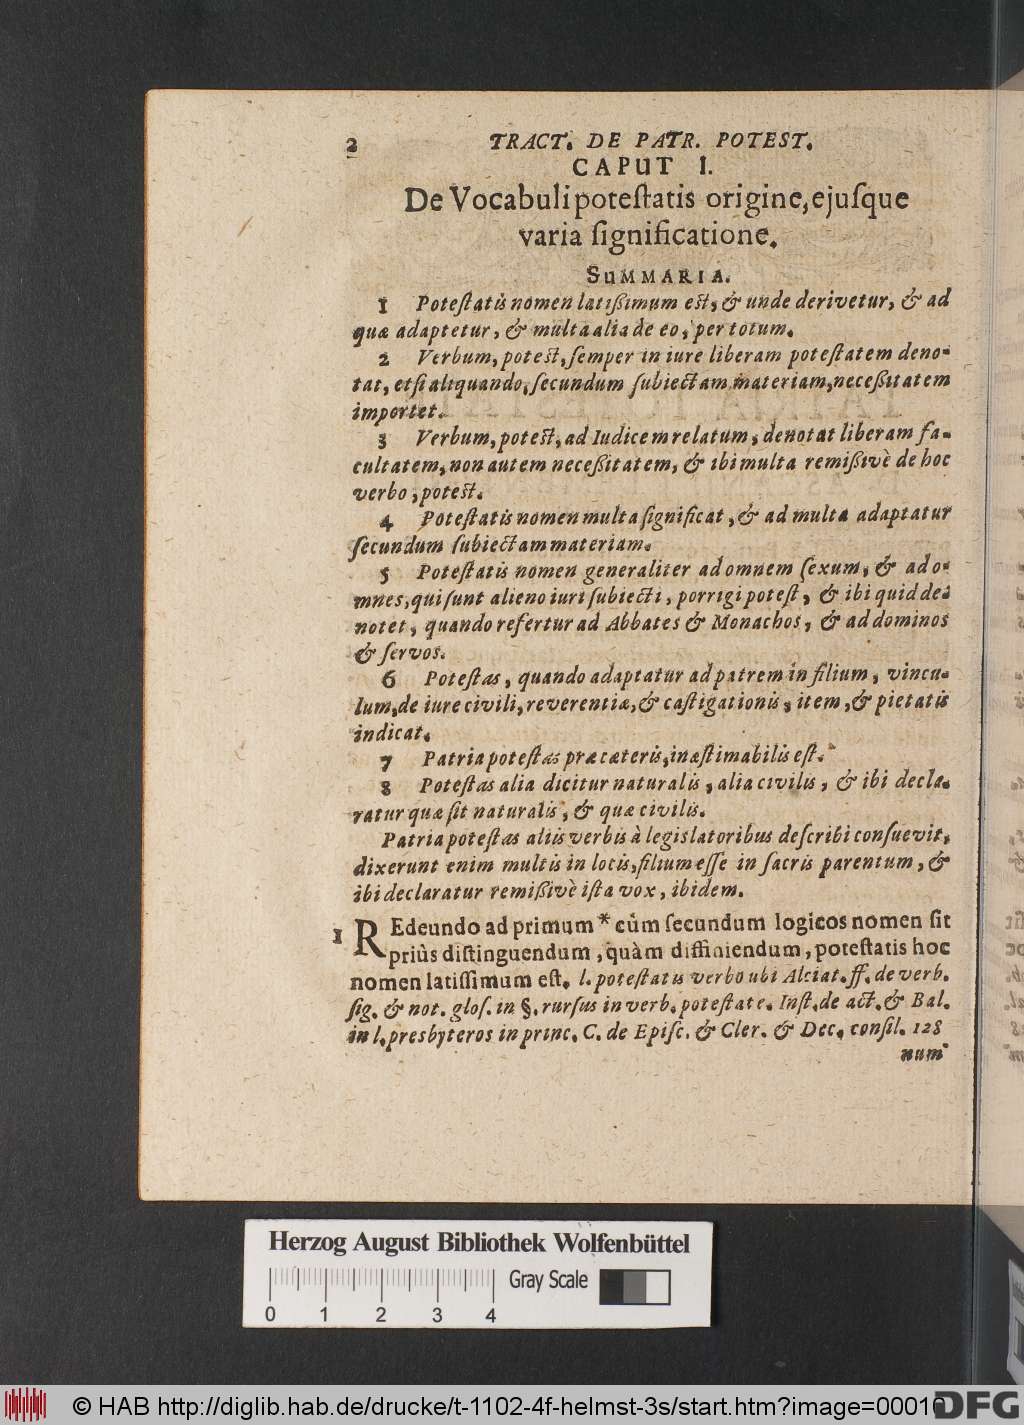 2 TRACT. DE PATR. POTEST.
CAPUT I.
De Vocabuli poteſtatis origine, ejuſque
varia ſignificatione.
SuMMARIA.
1 Poteſtatis nomen latißimum est, & unde derivetur, & ad
quæ adaptetur, & multa alia de eo, per totum.
2 Verbum, potest, ſemper in iure liberam poteſtatem deno-
tat, etſi aliquando, ſecundum ſubiectam materiam, neceßitatem
importet.
3 Verbum, potest, ad Iudicem relatum, denotat liberam fa-
cultatem, non autem neceßitatem, & ibi multa remißivè de hoc
verbo, potest.
4 Poteſtatis nomen multa ſignificat, & ad multa adaptatur
ſecundum ſubiectam materiam.
5 Poteſtatis nomen generaliter ad omnem ſexum, & ad o-
mnes, qui ſunt alieno iuri ſubiecti, porrigi poteſt, & ibi quid de-
notet, quando refertur ad Abbates & Monachos, & ad dominos
& ſervos.
6 Poteſtas, quando adaptatur ad patrem in filium, vincu-
lum, de iure civili, reverentiæ, & caſtigationis, item, & pietatis
indicat.
7 Patria poteſtas præ cæteris, inæſtimabilis eſt.
8 Poteſtas alia dicitur naturalis, alia civilis, & ibi decla-
ratur quæ ſit naturalis, & quæ civilis.
Patria poteſtas aliis verbis à legislatoribus deſcribi conſuevit,
dixerunt enim multis in locis, filium eſſe in ſacris parentum, &
ibi declaratur remißivè iſta vox, ibidem.
1 REdeundo ad primum * cùm ſecundum logicos nomen ſit
priùs diſtinguendum, quàm diffiniendum, poteſtatis hoc
nomen latiſſimum eſt. l. poteſtatis verbo ubi Alciat. ff. de verb.
ſig. & not. gloſ. in §. rurſus in verb. poteſtate. Inſt. de act. & Bal.
in l. presbyteros in princ. C. de Epiſc. & Cler. & Dec. conſil. 128
num
Herzog August Bibliothek Wolfenbüttel
Gray Scale
0 1 2 3 4
© HAB http://diglib.hab.de/drucke/t-1102-4f-helmst-3s/start.htm?image=00010
DFG